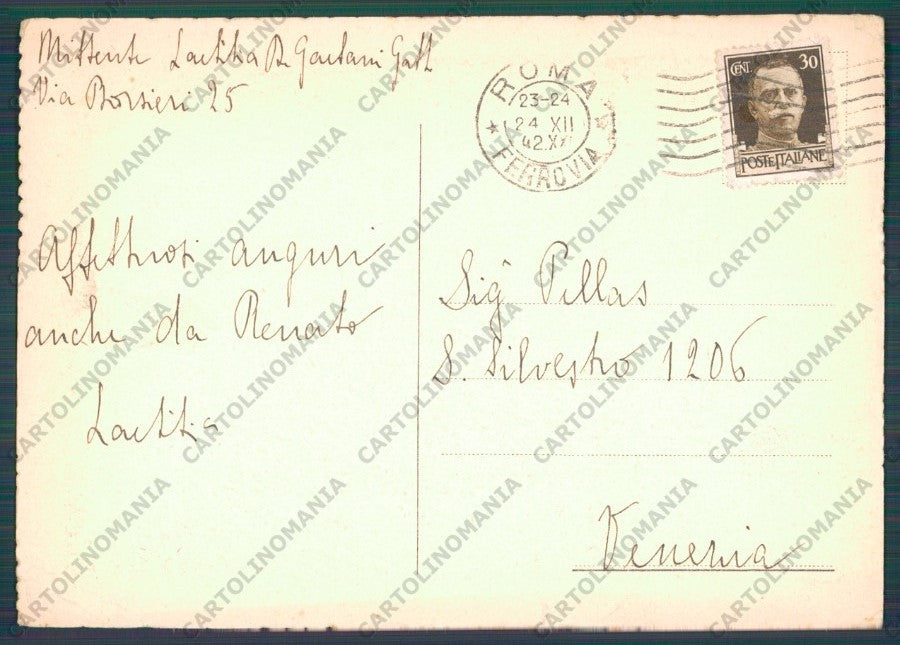 Mittente Laetitia D. Gaetani Gall
Via Borsieri 25
ROMA
FERROVIA
23-24
24 XII
42.XXI
CENT. 30
POSTE ITALIANE
Affettuosi auguri
anche da Renato
Laetitia
Sig. Pillas
S. Silvestro 1206
Venezia
CARTOLINOMANIA